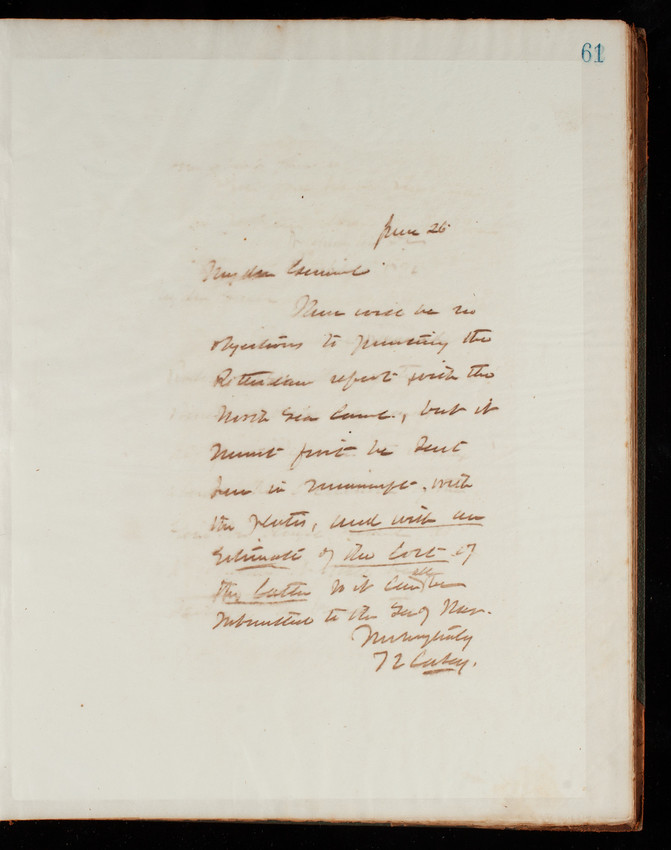 61
June 26
My dear General
There will be no
objections to printing the
Rotterdam report with the
North Sea Canal, but it
must first be sent
here in manuscript, with
the plates, and with an
Estimate of the Cost of
the latter so it can all be
submitted to the Sec of War.
Very truly
T L Casey.